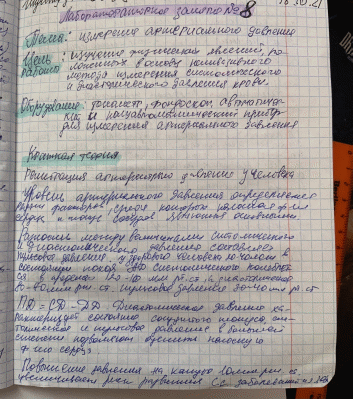 Лабораторное занятие №8
Тема: измерение артериального давления
Цель: изучение физических явлений, по-
работы ложенных в основу косвенного
метода измерения систолического
и диастолического давления крови.
Оборудование: тонометр, фонендоскоп, автоматиче-
кий и полуавтоматический прибор
для измерения артериального давления
Краткая теория
Регистрация артериального давления у человека
Уровень артериального давления определяется
рядом факторов, среди которых
сердца и тонус сосудов являются основными.
Разность между величинами систолического
и диастолического давления составляет
пульсовое давление. у здорового человека
состоянии покоя систолическое
в пределах мм рт.ст. диастолическое
мм рт. ст. пульсовое давление 30-40 мм рт. ст
ПД = СД - ДД Диастолическое давление ха-
рактеризует состояние сосудистого тонуса, сис-
толическое и пульсовое давление в большей
степени позволяют оценить насосную
ф-ию сердца
Повышение давления на каждую
увеличивает риск развития С.С. заболеваний на